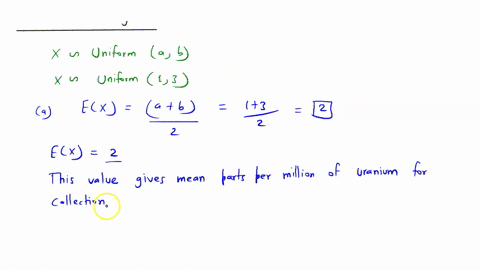 X ~ Uniform (a, b)
X ~ Uniform (1, 3)
(a) E(X) = (a+b)/2 = 1+3/2 = 2
E(X) = 2
This value gives mean parts per million of uranium for
collection.